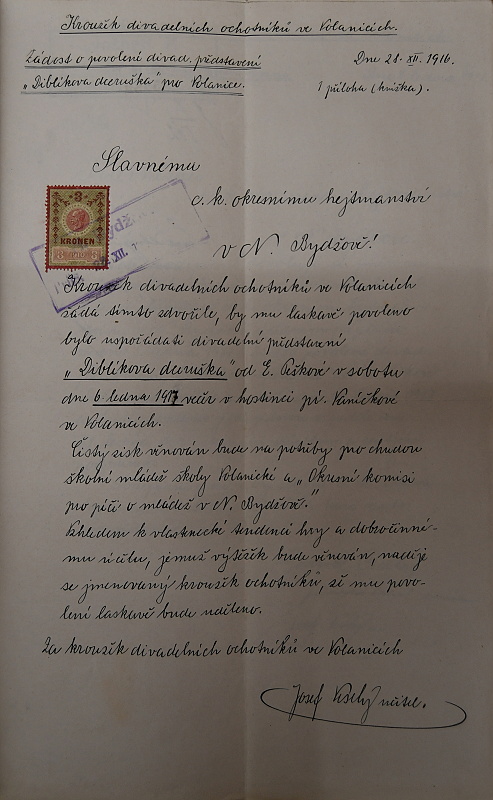 Kroužek divadelních ochotníků ve Volanicích.
Žádost o povolení divad. představení
„Diblíkova dceruška" pro Volanice.
Dne 28. XII. 1916.
1 příloha (knížka).
Slavnému
c. k. okresnímu hejtmanství
v N. Bydžově!
3
KRONEN
XII.
Kroužek divadelních ochotníků ve Volanicích
žádá tímto zdvořile, by mu laskavě povoleno
bylo uspořádati divadelní představení
„Diblíkova dceruška" od E. Peškové v sobotu
dne 6. ledna 1917 večer v hostinci pí. Vaníčkové
ve Volanicích.
Čistý zisk věnován bude na potřeby pro chudou
školní mládež školy Volanické a „Okresní komisi
pro péči o mládež v N. Bydžově."
Vzhledem k vlastnecké tendenci hry a dobročinné-
mu účelu, jemuž výtěžek bude věnován, naděje
se jmenovaný kroužek ochotníků, že mu povo-
lení laskavě bude uděleno.
Za kroužek divadelních ochotníků ve Volanicích
Josef Veselý učitel.